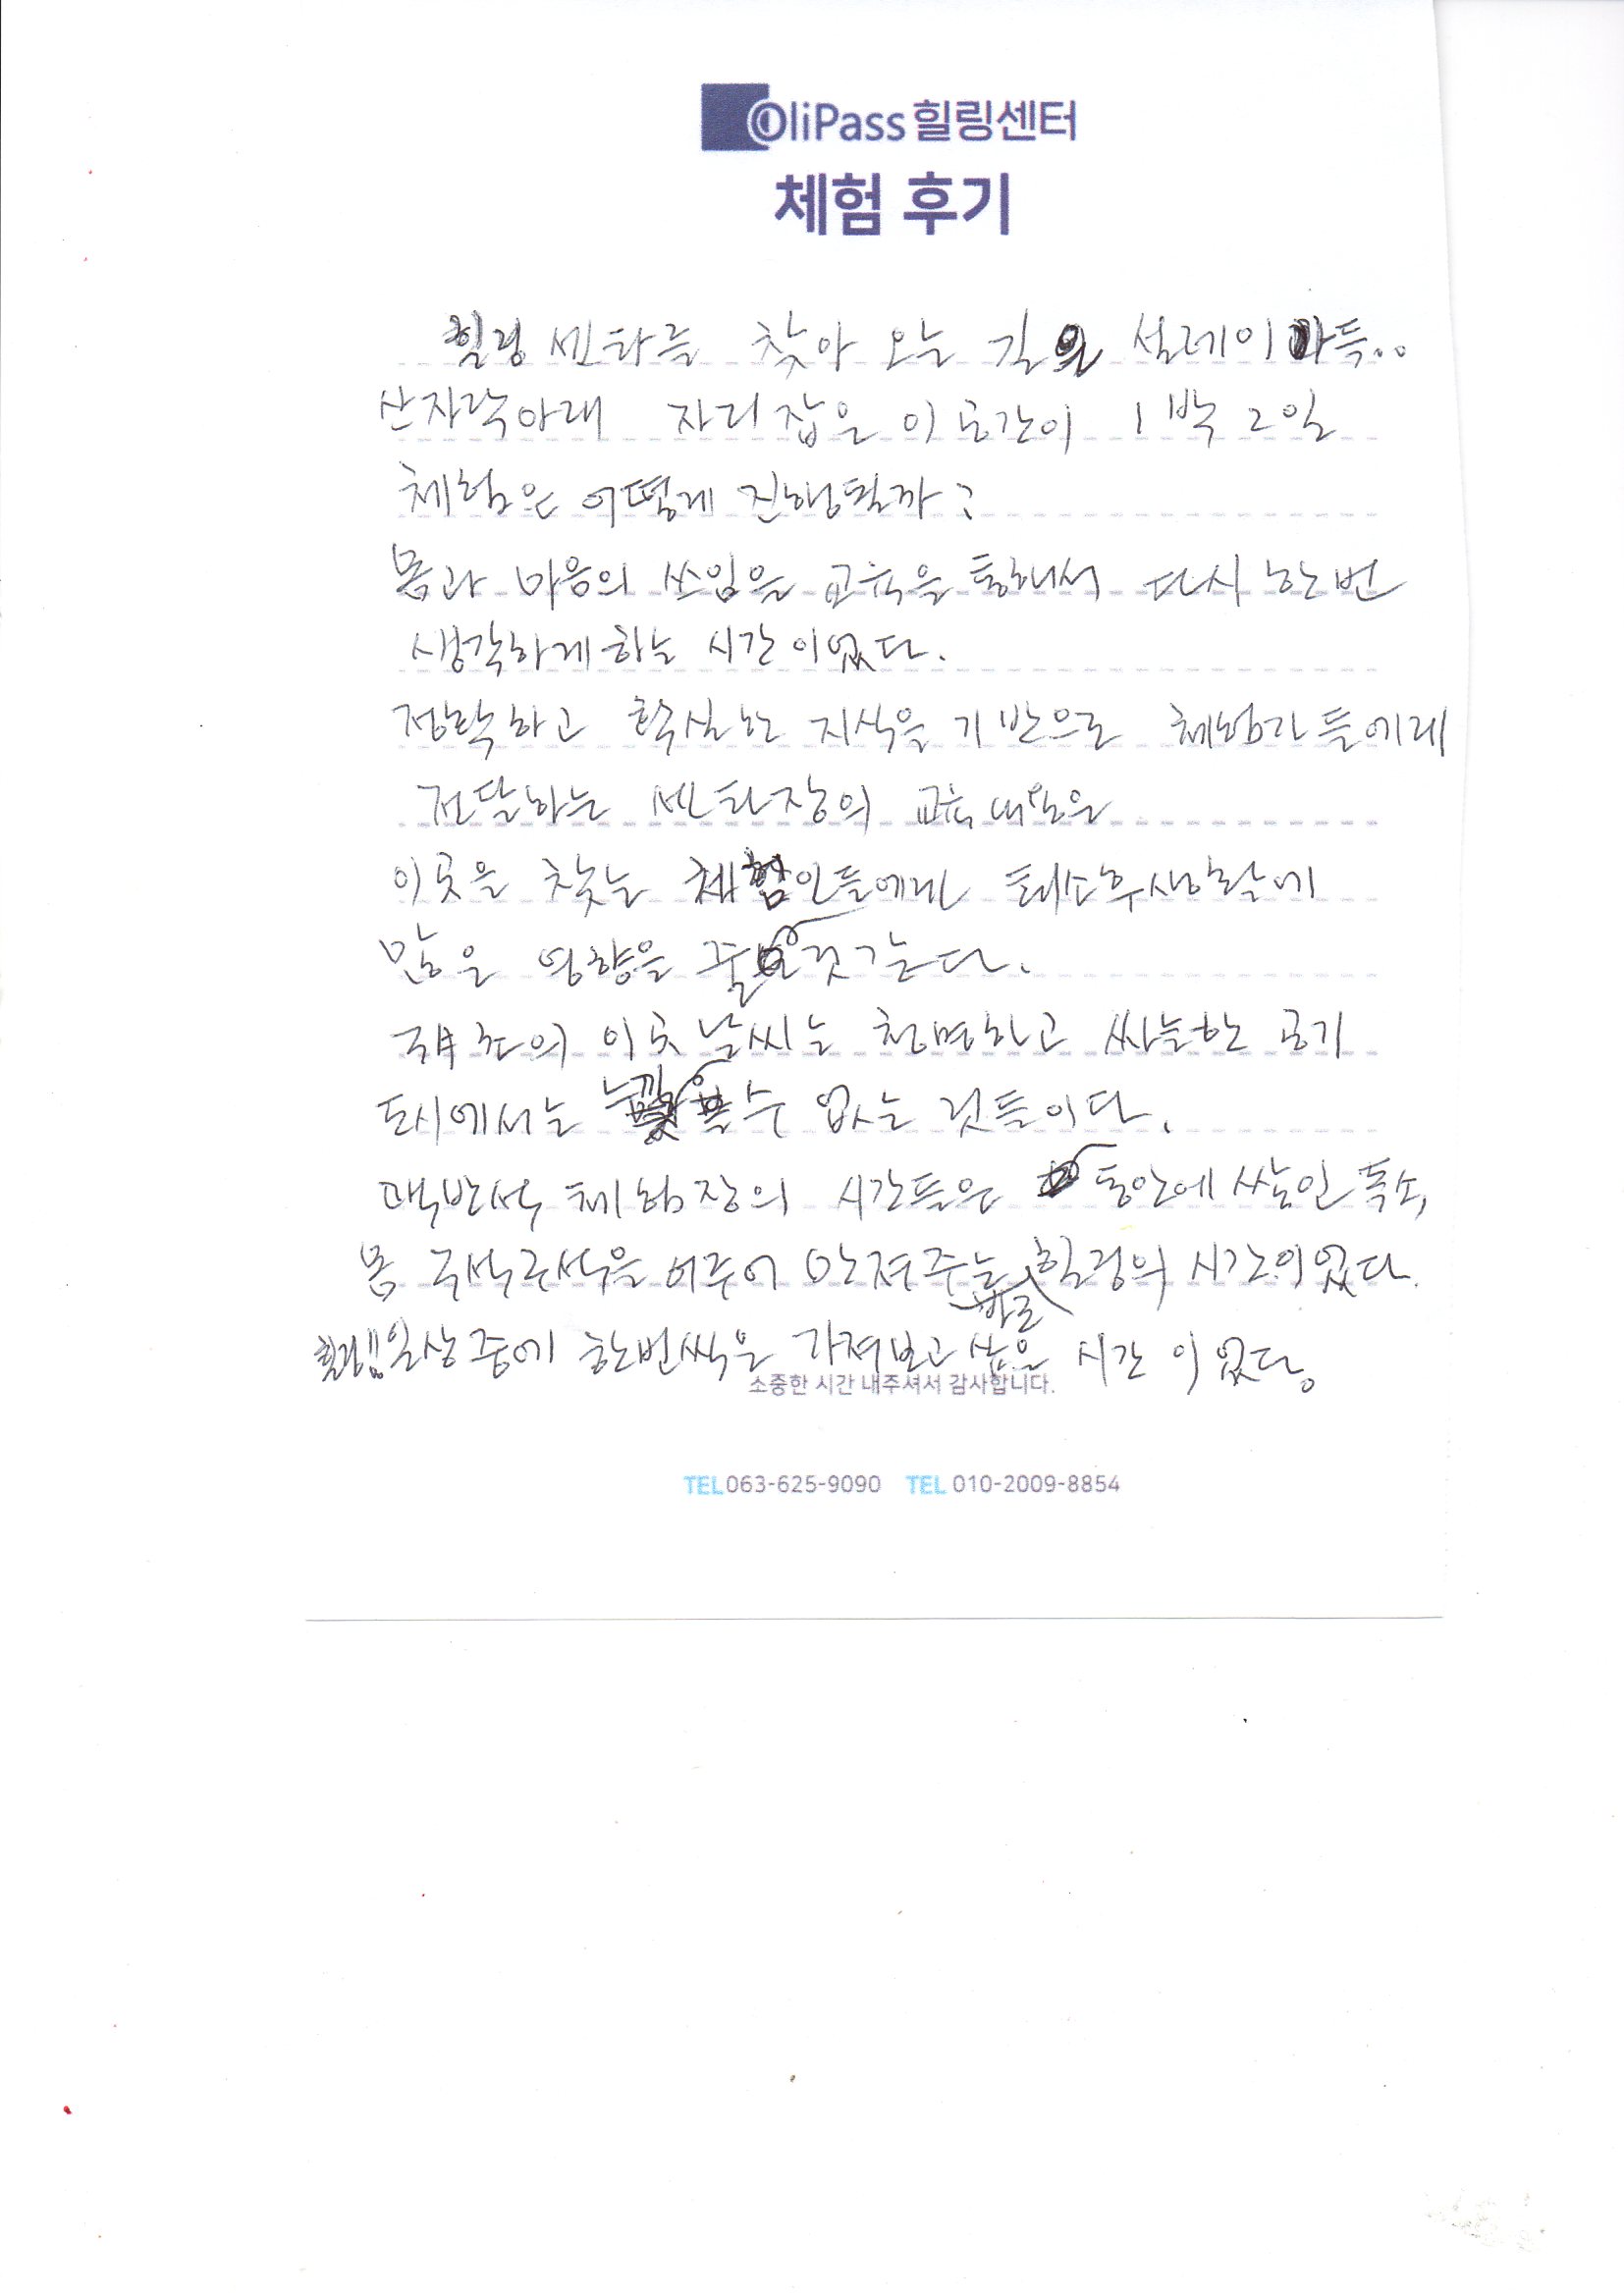 OliPass 힐링센터
체험 후기
힐링 센타를 찾아 오는 길 설레이 가득..
산자락아래 자리잡은 이 공간이 1박 2일
체험은 어떻게 진행될까?
몸과 마음의 쓰임을 교육을 통해서 다시 한번
생각하게하는 시간이었다.
정확하고 확실한 지식을 기반으로 체험자들에게
전달하는 센타장의 교육내용은
이곳을 찾는 체험인들에게 퇴소후 생활에
많은 영향을 줄 것 같는다.
초의 이곳 날씨는 청명하고 싸늘한 공기
도시에서는 느낄 수 없는 것들이다.
맥반석 체험장의 시간들은 동안에 쌓인 독소,
몸 구석구석을 어루어 만져주는 힐링의 시간이었다.
바로
힐링!! 일상중에 한번씩은 가져보고 싶은 시간이었다.
소중한 시간 내주셔서 감사합니다.
TEL 063-625-9090 TEL 010-2009-8854